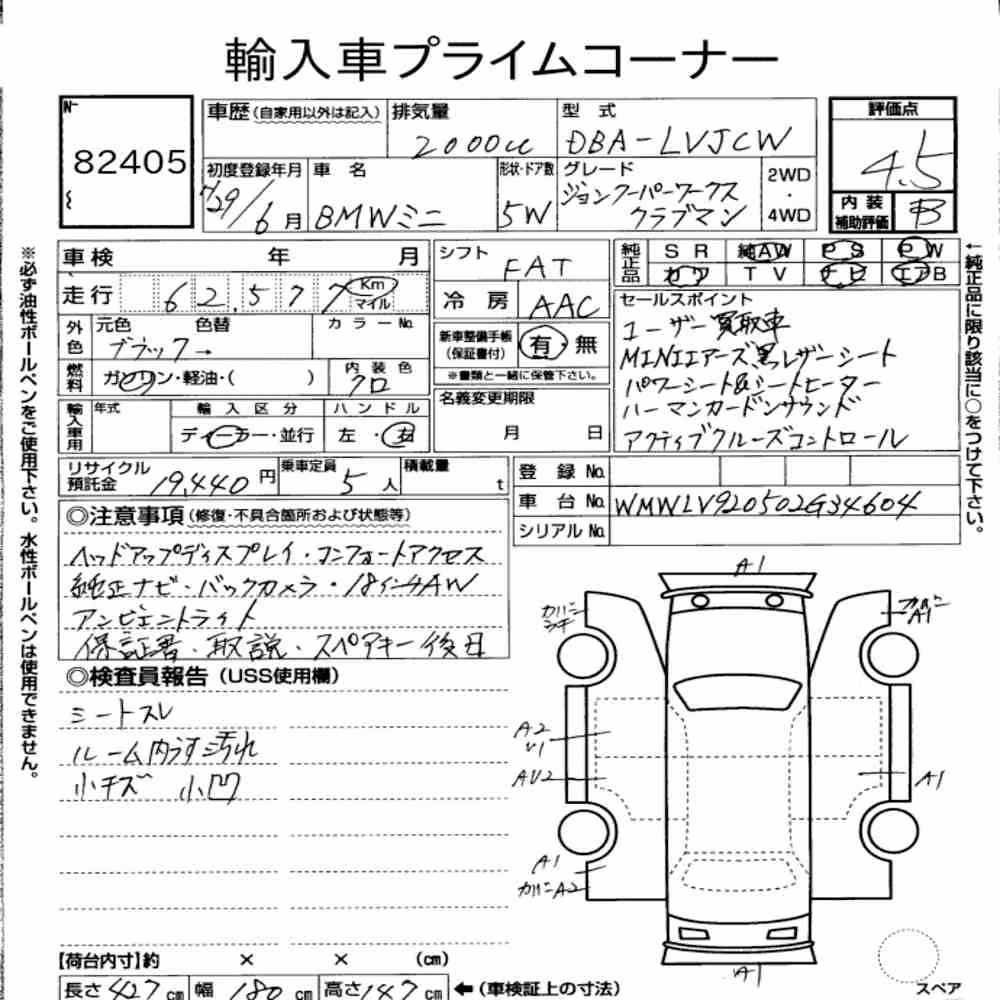 輸入車プライムコーナー
No.
82405
車歴(自家用以外は記入)
排気量
2000cc
型 式
DBA-LVJCW
評価点
4.5
内装
補助評価
B
初度登録年月
H29/6月
車 名
BMWミニ
形状・ドア数
5W
グレード
ジョンクーパーワークス
クラブマン
2WD
・
4WD
車検 年 月
走行 62,577 Km
マイル
シフト
FAT
冷 房
AAC
純正品
SR 純AW PS PW
カワ TV ナビ エアB
外色
元色 色替
ブラック→
カラーNo.
燃料
ガソリン・軽油・( )
内装色
クロ
新車整備手帳
(保証書付)
有・無
※書類と一緒に保管下さい。
セールスポイント
ユーザー買取車
MINIエアーズ黒レザーシート
パワーシート&シートヒーター
ハーマンカードンサウンド
アクティブクルーズコントロール
輸入車用
年式
輸入区分
ディーラー・並行
ハンドル
左・右
名義変更期限
月 日
リサイクル
預託金
19,440円
乗車定員
5人
積載量
t
登 録 No.
車 台 No. WMWLV920502G34604
シリアル No.
◎注意事項(修復・不具合箇所および状態等)
ヘッドアップディスプレイ・コンフォートアクセス
純正ナビ・バックカメラ・18インチAW
アンビエントライト
保証書・取説・スペアキー後日
◎検査員報告(USS使用欄)
シートスレ
ルーム内うす汚れ
小キズ 小凹
A1
A1
A2
U1
AU2
A1
A1
A2
A1
【荷台内寸】約 × × (cm)
長さ427cm 幅180cm 高さ147cm ←(車検証上の寸法)
スペア
※必ず油性ボールペンをご使用下さい。水性ボールペンは使用できません。
←純正品に限り該当に○をつけて下さい。